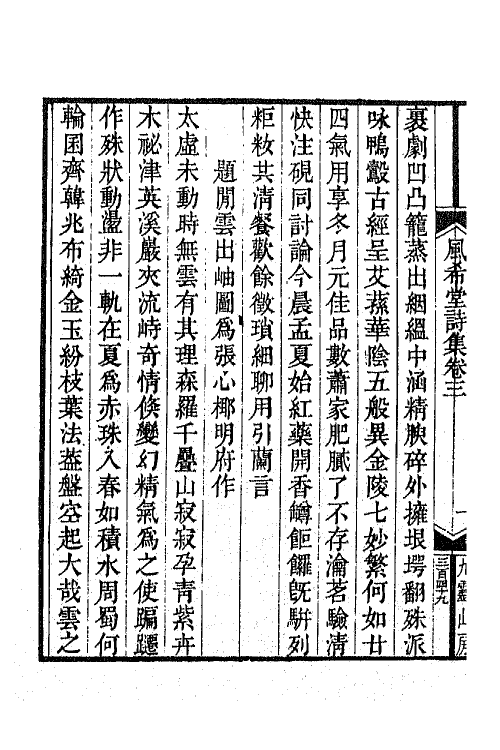 風希堂詩集卷三
一
九靈山房
裹劇凹凸籠蒸出絪縕中涵精腴碎外擁垠堮翻殊派
咏鴨觳古經呈艾蓀華陰五般異金陵七妙繁何如廿
四氣用享冬月元佳品數蕭家肥膩了不存瀹茗驗清
快注硯同討論今晨孟夏始紅藥開香罇饀饠旣駢列
粔籹共淸餐歡餘徵瑣細聊用引蘭言
題閒雲出岫圖爲張心椰明府作
太虛未動時無雲有其理森羅千疊山寂寂孕青紫卉
木祕津英溪巖夾流峙奇情倏變幻精氣爲之使騙躚
作殊狀動盪非一軌在夏爲赤珠入春如積水周蜀何
輪囷齊韓兆布綺金玉紛枝葉法葢盤空起大哉雲之